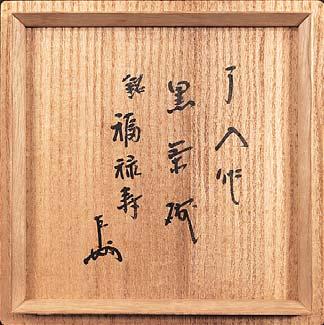 了入作
黒茶碗
銘 福禄寿
左